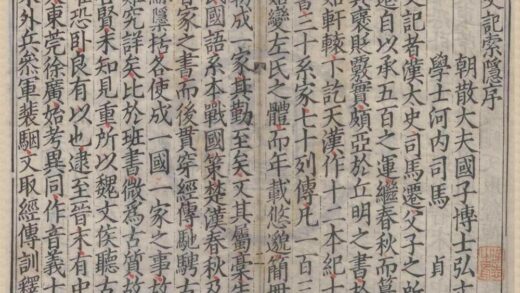 史記索隱序
朝散大夫國子博士弘
學士河內司馬貞
史記者漢太史司馬遷父子之所
遷自以承五百之運繼春秋而纂
其襃貶覈實頗亞於丘明之書於
始軒轅下訖天漢作十二本紀十
書三十系家七十列傳凡一百三
始變左氏之體而年載悠邈簡冊
勒成一家其勤至矣又其屬稾先
國語系本戰國策楚漢春秋及
百家之書而後貫穿經傳馳騁古
綜隱括各使成一國一家之事故
難究詳矣比於班書微為古質故
名賢未知見重所以魏文侯聽古
唯恐卧良有以也逮至晉末有中
夫東莞徐廣始考異同作音義十
宋外兵參軍裴駰又取經傳訓釋